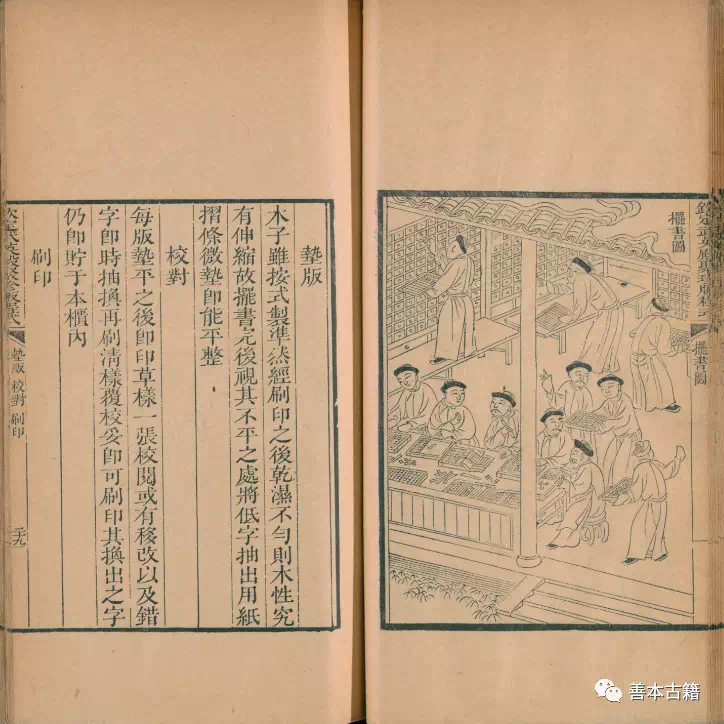 欽定武英殿聚珍版程式
擺書圖
擺書圖
墊版
木子雖按式製準然經刷印之後乾濕不勻則木性究
有伸縮故擺書完後視其不平之處將低字抽出用紙
摺條微墊卽能平整
校對
每版墊平之後卽印草樣一張校閱或有移改以及錯
字卽時抽換再刷清樣覆校妥卽可刷印其換出之字
仍卽貯于本櫃內
刷印
欽定武英殿聚珍版程式
墊版 校對 刷印
二十九
善本古籍